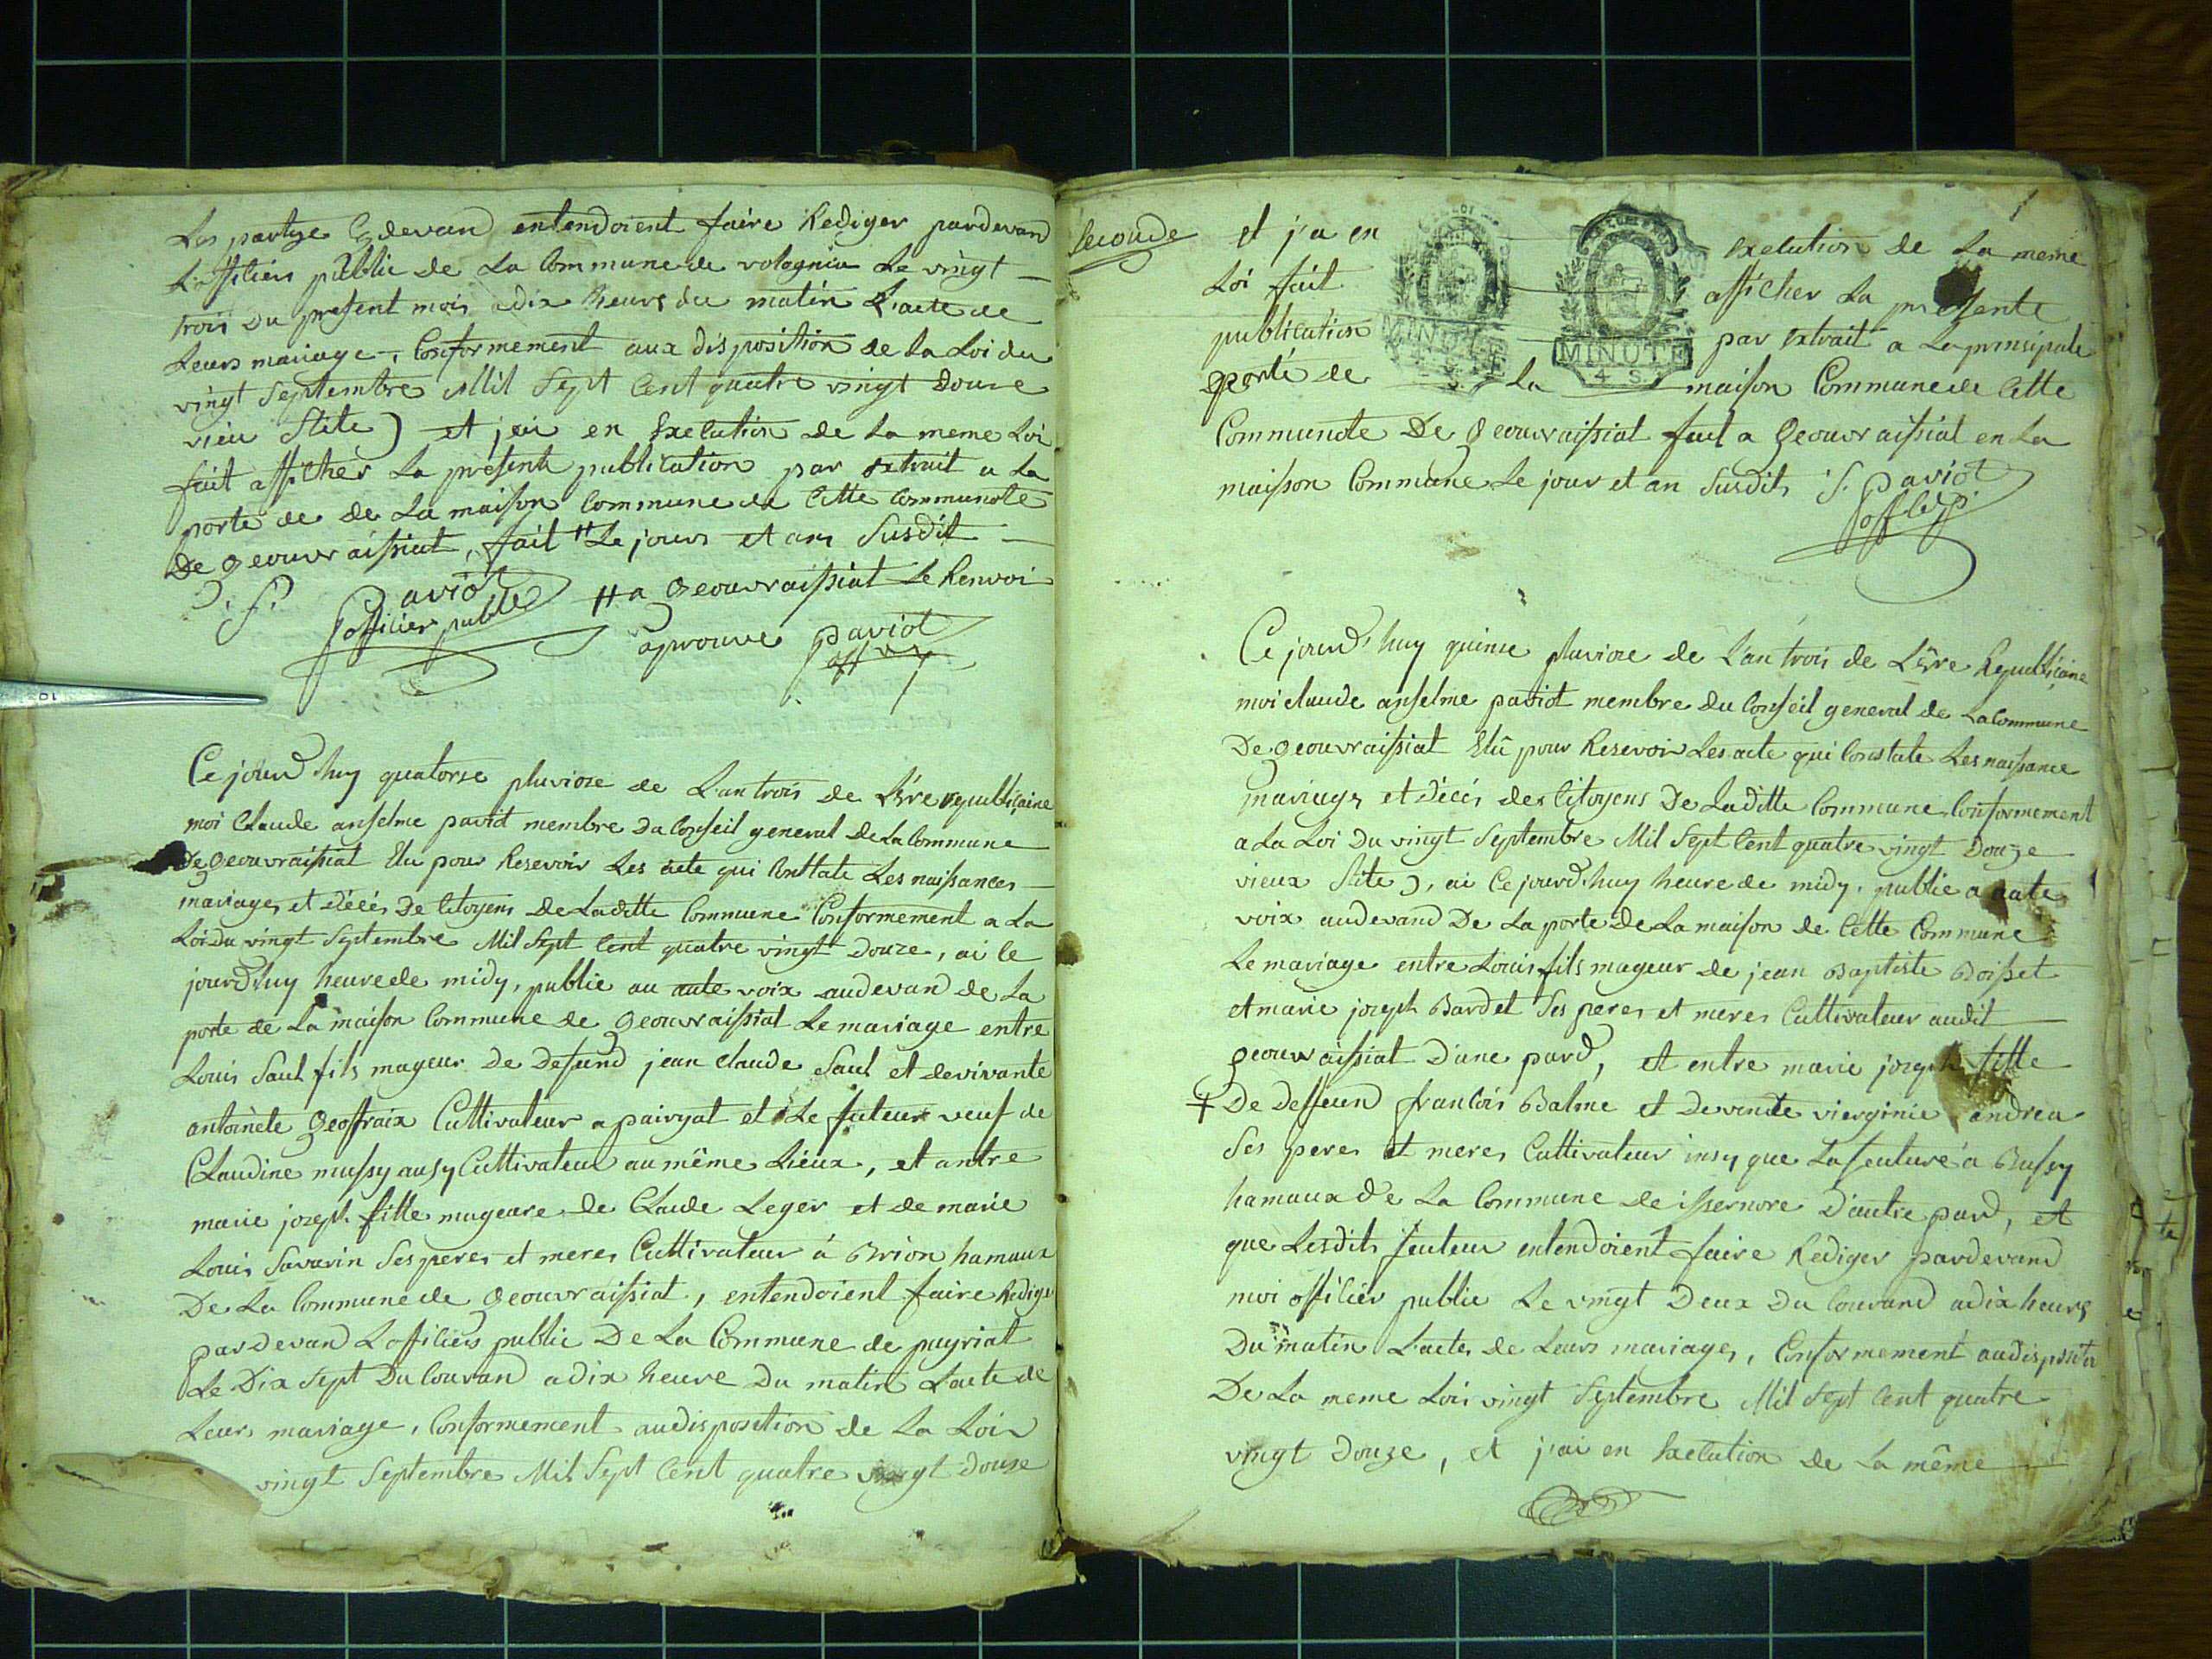 Les partye Cy devan entendoient faire Rediger pardevan
L'affitiers public de La Commune de volognia Le vingt
trois Du present mois adix heurs du matin L'acte de
Leurs mariage, Conformement aux disposition de la Loi du
vingt Septembre Mil Sept Cent quatre vingt Douze
vieu Stile) et jai en Execution de la meme Loi
fait afficher La presente publication par Extrait a La
porte de de La maison Commune de Cette Communote
De geouvraissiat, fait # Le jours et an Susdit
Paviot
officier public
# a Geouvraissiat Le Renvoi
aprouve paviot
Ce jourd'huy quatorse pluviose de L'an trois de L'Ere republicaine
moi Claude anselme paviot membre du Conseil general de La Commune
De geouvraissiat Elu pour Resevoir Les acte qui Conttate Les naissances
mariages et décés De Citoyens de Laditte Commune Conformement a La
Loi Du vingt Septembre Mil Sept Cent quatre vingt Douze, ai Ce
jourd'huy heure de midy, publie au aute voix audevand de La
porte de La maison Commune de Geouvraissiat Le mariage entre
Louis Saul fils mageur De Defund jean Claude Saul et de vivante
antoinete Geoffraix Cultivateur a pairyat et Le futeur veuf de
Claudine mussy ausy Cultivateur au même Lieux, et antre
marie joseph fille mageure de Claude Leger et de marie
Louis Savarin Ses peres et meres Cultivateur á Brion hamaux
De La Commune de Geouvraissiat, entendoient faire Rediger
pardevand L'officiers public De La Commune de payriat
Le Dix Sept Du Couran adix heure Du matin L'acte de
Leurs mariage, Conformement audisposition de La Loi
vingt Septembre Mil Sept Cent quatre vingt douze
Seconde
et j'a en Exelution de La meme
Loi fait afficher La presente
publication par Extrait a La prinsipale
porte de La maison Commune de Cette
MINUTE
MINUTE
4 S
Communote De geouvraissiat fait a Geouvraissiat en La
maison Commune Le jour et an Susdit, Paviot
Ce jourd'huy quinse pluviose de L'an trois de L'Ere Republicaine
moi claude anselme paviot membre du Conseil general de La Commune
De geouvraissiat Elû pour Resevoir Les acte qui Constate Les naissance
mariages et décés des Citoyens De Laditte Commune Conformement
a La Loi Du vingt Septembre Mil Sept Cent quatre vingt Douze
vieux Stile), ai Ce jourd'huy heure de midy, publie a aute
voix audevand De La porte de La maison de Cette Commune
Le mariage entre Louis fils mageur de jean Baptiste Boisset
et marie joseph Bardet Ses peres et meres Cultivateur audit
geouvraissiat D'une pard, et entre marie joseph fille
+ De deffeund francois Balme et de viergine andrea
Ses peres et meres Cultivateur insy que La feuture á Bussy
hamaux de La Commune de issernore D'autre pard, et
que Lesdits feuteur entendoient faire Rediger pardevand
moi offitier public Le vingt Deux Du Courand adix heurs
Du matin L'acte de Leurs mariages, Conformement audispositi
De La meme Loi vingt Septembre Mil Sept Cent quatre
vingt Douze, et j'ai en Exelution de La même